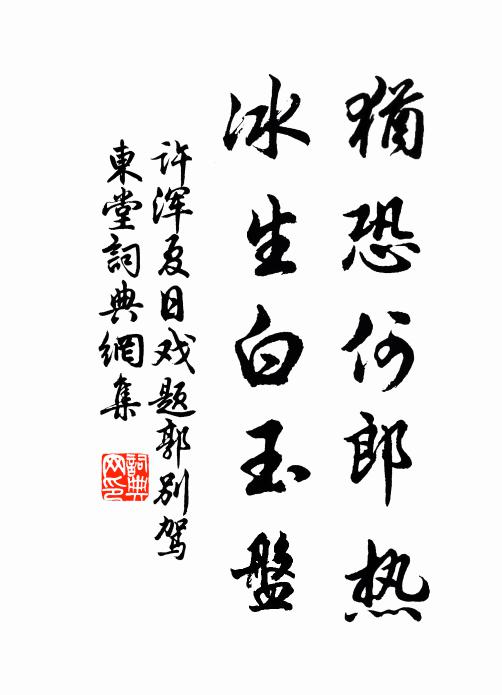 猶恐何郎热
冰生白玉盤
许渾夏日戏题郭别驾
東堂詞典網集
詞典网印